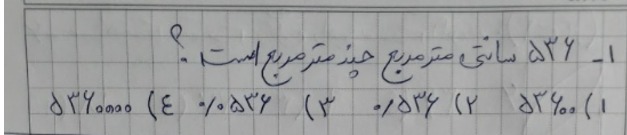 ۱- ۵۳۶ سانتی مترمربع چند مترمربع است؟
۱) ۵۳۶۰۰ ۲) ۰/۵۳۶ ۳) ۰/۰۵۳۶ ٤) ۵۳۶۰۰۰۰